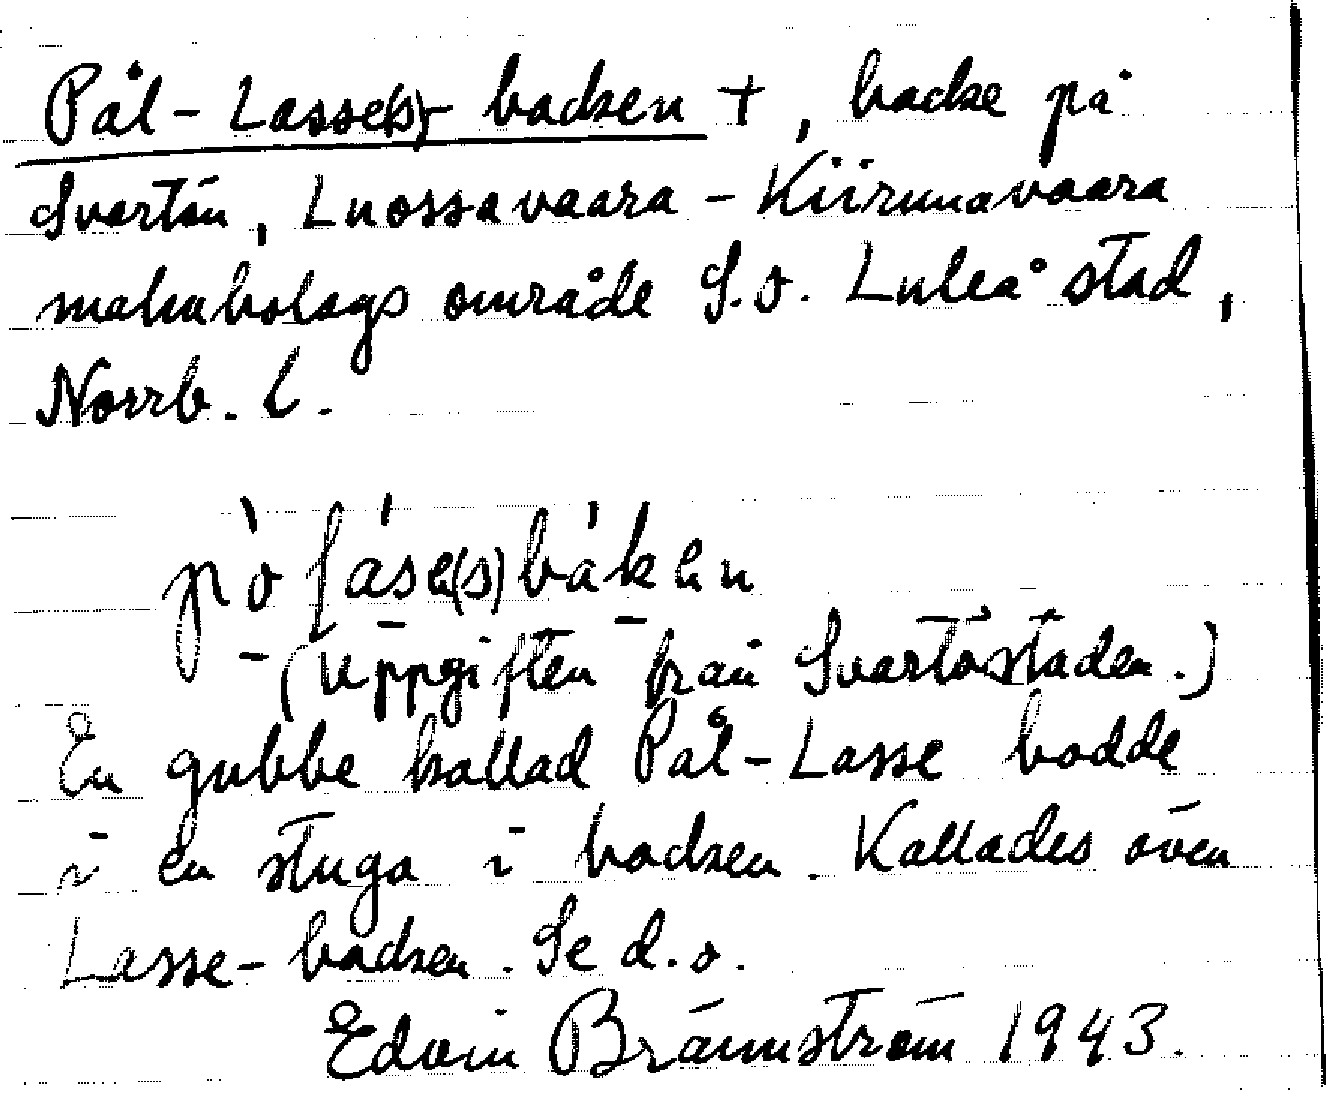 Pål-Lasse(s)-backen +, backe på
Svartön, Luossavaara-Kiirunavaara
malmbolags område S.O. Luleå stad,
Norrb. l.
(Uppgiften från Svartöstaden.)
En gubbe kallad Pål-Lasse bodde
i en stuga i backen. Kallades även
Lasse-backen. Se d.o.
Edvin Brännström 1943.